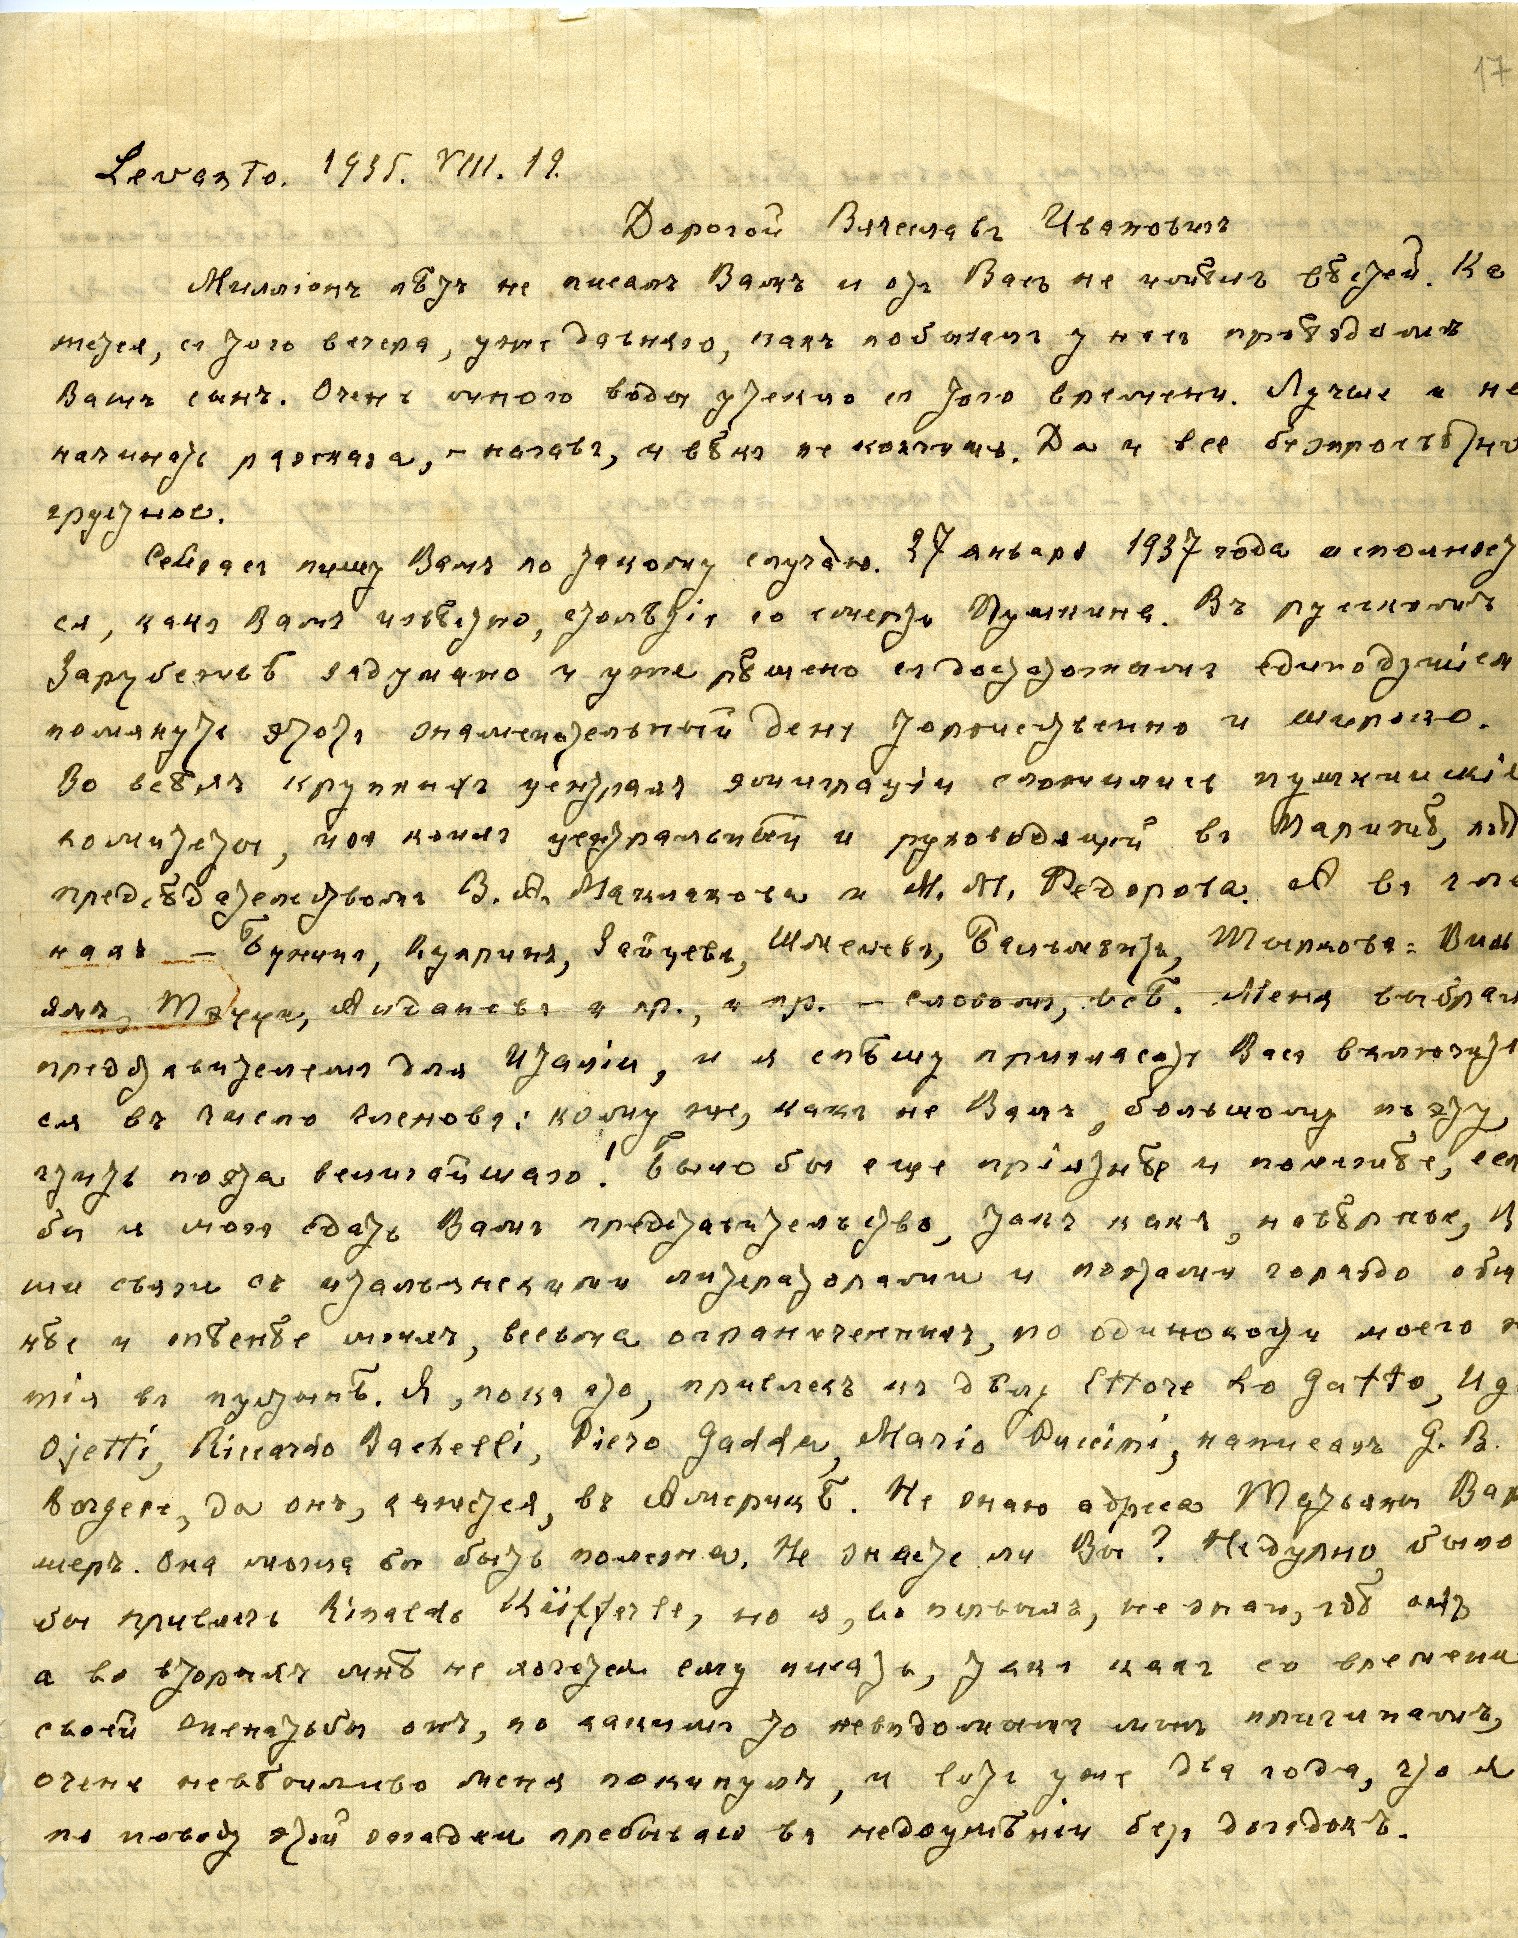 17
Levanto. 1935. VIII. 19.
Дорогой Вячеславъ Ивановичъ
Милліонъ лѣтъ не писалъ Вамъ и отъ Васъ не имѣлъ вѣстей. Ка
жется, съ того вечера, уже давняго, какъ побывалъ у насъ проѣздомъ
Вашъ сынъ. Очень много воды утекло съ того времени. Лучше и не
начинать разсказа, – начавъ, и вѣкъ не кончишь. Да и все безпросвѣтно
грустное.
Сейчасъ пишу Вамъ по такому случаю. 27 января 1937 года исполнит
ся, какъ Вамъ извѣстно, столѣтіе со смерти Пушкина. Въ русскомъ
Зарубежьѣ задумано и уже рѣшено съ достаточнымъ единодушіем
помянуть этотъ знаменательный день торжественно и широко.
Во всѣхъ крупныхъ центрахъ эмиграціи сложились пушкинскіе
комитеты, изъ коихъ центральный и руководящій въ Парижѣ, подъ
предсѣдательствомъ В. А. Маклакова и М. М. Федорова. А въ чле
нахъ – Бунинъ, Купринъ, Зайцевъ, Шмелевъ, Бальмонтъ, Тыркова-Виль
ямъ, Тэффи, Алдановъ и пр., и пр. – словомъ, всѣ. Меня выбрали
представителемъ для Италіи, и я спѣшу пригласить Васъ включить
ся въ число членовъ: кому же, какъ не Вамъ, большому поэту,
чтить поэта величайшаго! Было бы еще пріятнѣе и полезнѣе, есл
бы я могъ сдать Вамъ представительство, такъ какъ, навѣрное, В
ши связи съ итальянскими литераторами и поэтами гораздо обши
нѣе и тѣснѣе моихъ, весьма ограниченныхъ, по одинокости моего ж
тія въ пустынѣ. Я, пока что, привлекъ къ дѣлу Ettore Lo Gatto, Ug
Ojetti, Riccardo Bachelli, Piero Gadda, Mario Puccini, написалъ G. B.
Borgese, да онъ, кажется, въ Америкѣ. Не знаю адреса Татьяны Вар
шеръ. Она могла бы быть полезна. Не знаете ли Вы? Недурно было
бы привлечь Rinaldo Küfferle, но я, во первыхъ, не знаю, гдѣ онъ,
а во вторыхъ мнѣ не хочется ему писать, такъ какъ со времени
своей женитьбы онъ, по какимъ то невѣдомымъ мнѣ причинамъ,
очень невѣжливо меня покинулъ, и вотъ уже два года, что я
по поводу этой загадки пребываю въ недоумѣніи безъ догадокъ.